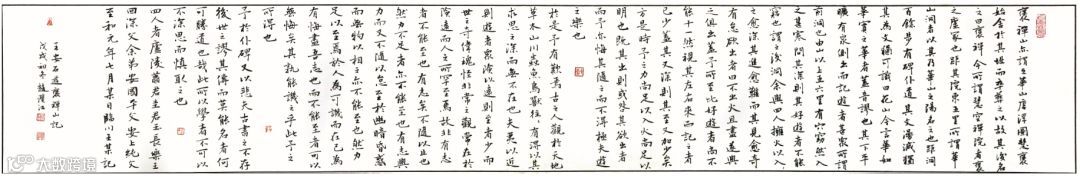 褒禪山亦謂之華山唐浮圖慧褒
始舍於其址而卒葬之以故其後名
之曰褒禪今所謂慧空禪院者褒
之廬冢也距其院東五里所謂華
山洞者以其乃華山之陽名之也距洞
百餘步有碑仆道其文漫滅獨
其為文猶可識曰花山今言華如
華實之華者蓋音謬也其下平
曠有泉側出而記遊者甚眾所謂
前洞也由山以上五六里有穴窈然入
之甚寒問其深則其好遊者不能
窮也謂之後洞余與四人擁火以入
入之愈深其進愈難而其見愈奇
有怠欲出者曰不出火且盡遂與
之俱出蓋予所至比好遊者尚不
能十一然視其左右來而記之者
已少蓋其又深則其至又加少矣
方是時予之力尚足以入火尚足以
明也既其出則或咎其欲出者
而予亦悔其隨之而不得極夫遊
之樂也
於是予有歎焉古人之觀於天地
草木山川蟲魚鳥獸往往有得以其
求思之深而無不在也夫夷以近
則遊者眾險以遠則至者少而
世之奇偉瑰怪非常之觀常在於
險遠而人之所罕至焉故非有志
者不能至也有志矣不隨以止也
然力不足者亦不能至也有志與
力而又不隨以怠至於幽暗昏惑
而無物以相之亦不能至也然力
足以至焉於人為可譏而在己為
有悔盡吾志也而不能至者可以
無悔矣其孰能譏之乎此予之
所得也
予於仆碑又以悲夫古書之不存
後世之謬其傳而莫能名者何
可勝道也哉此所以學者不可以
不深思而慎取之也
四人者廬陵蕭君圭君玉長樂王
回深父余弟安國平父安上純父
至和元年七月某日臨川王某記
王安石遊褒禪山記